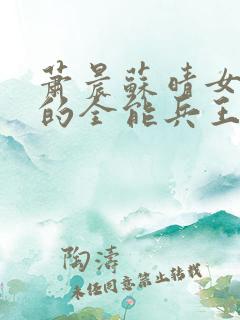 蕭晨蘇晴女
的全能兵王
陶濤
未任同意禁止转载